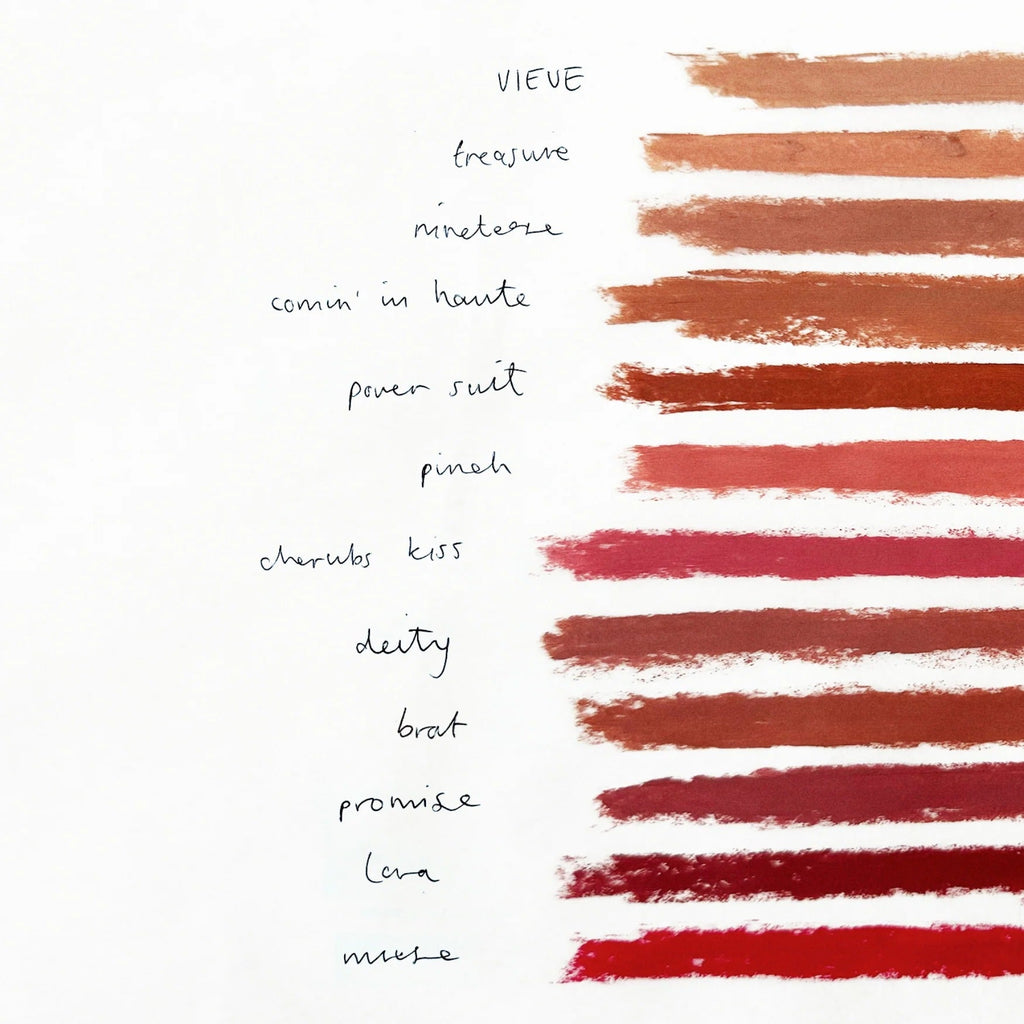 VIEVE
treasure
ninetease
comin' in haute
power suit
pinch
cherubs kiss
deity
brat
promise
muse